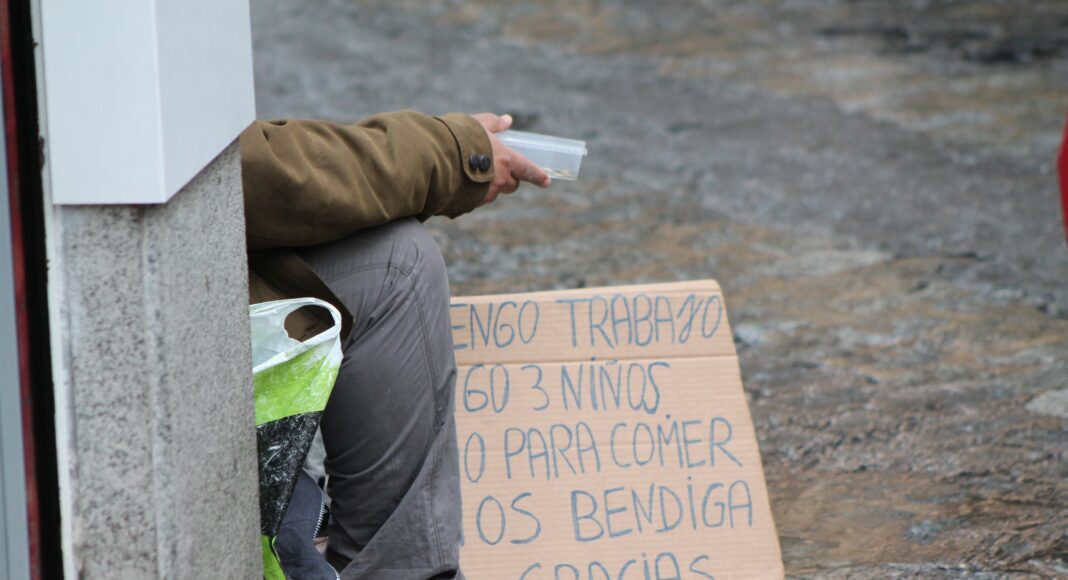 ENGO TRABAJO
GO 3 NIÑOS
O PARA COMER
OS BENDIGA
GRACIAS